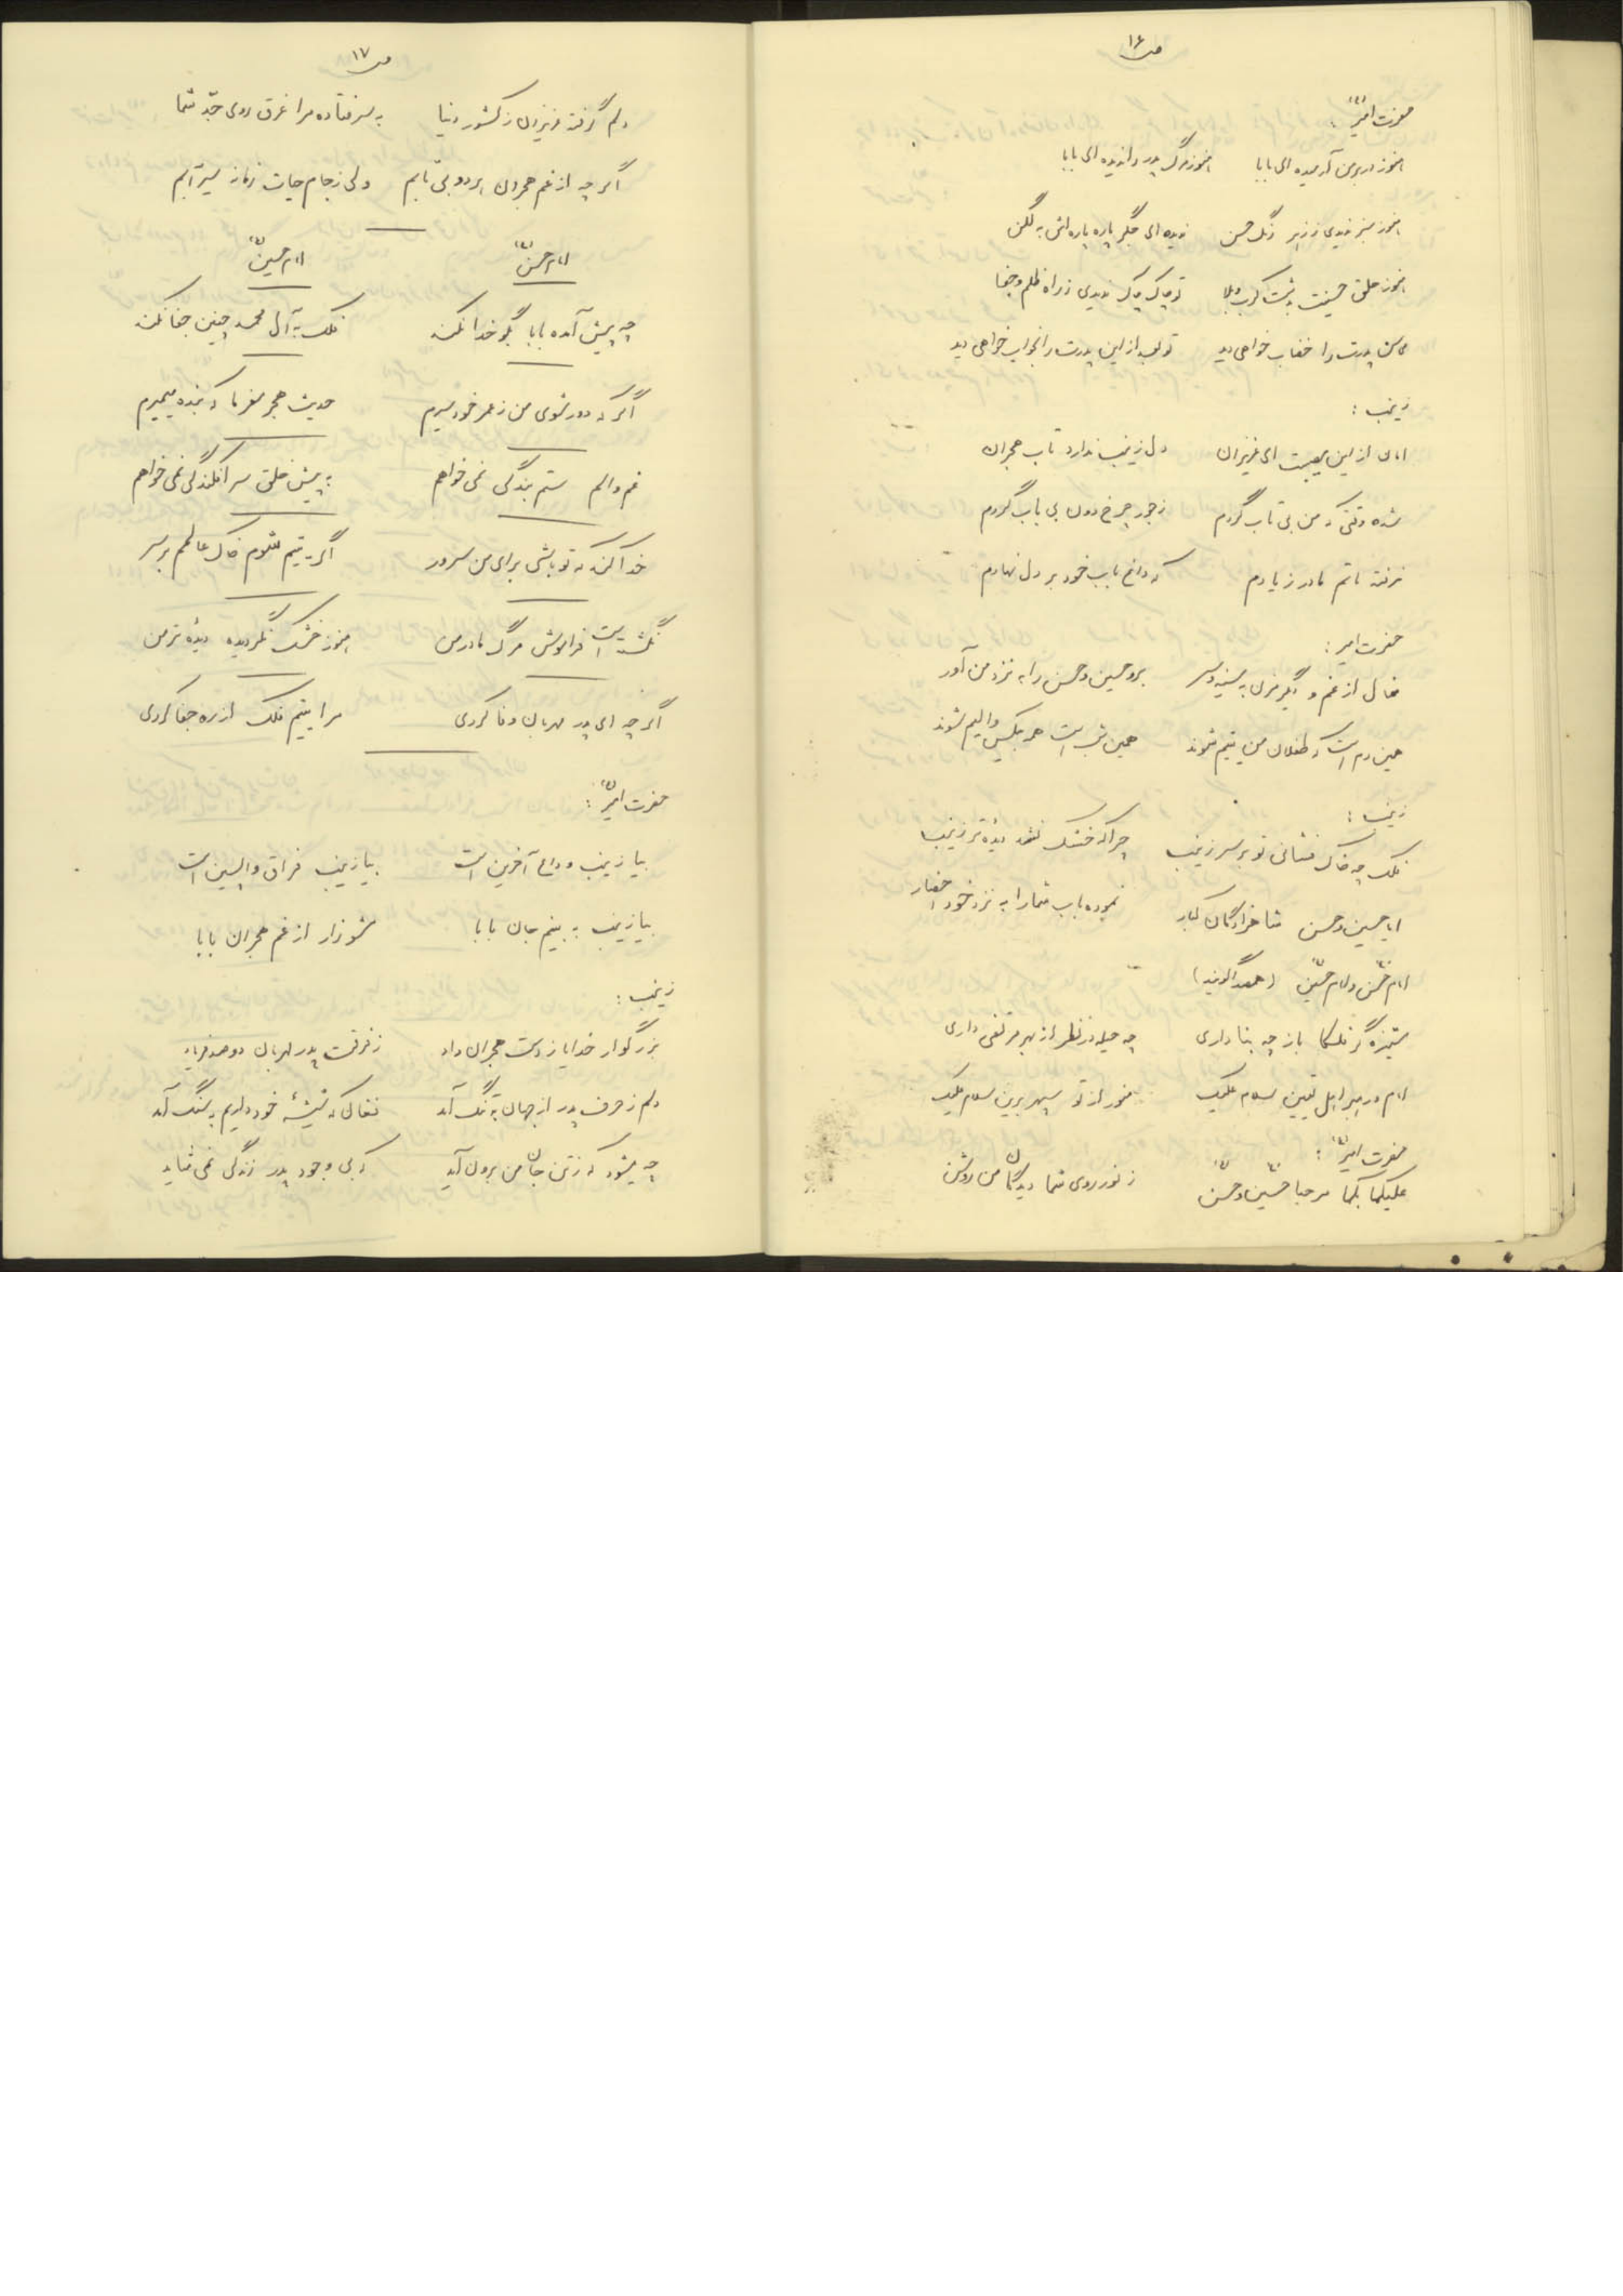 ص ۱۶
حضرت امیر ع :
هنوز در بر من آرمیده ای بابا هنوز مرگ پدر را ندیده ای بابا
هنوز سبز ندیدی ز زهر رنگ حسن ندیده ای جگر پاره پاره اش به لگن
هنوز حلق حسینت به دشت کرب و بلا تو چاک چاک ندیدی ز راه ظلم و جفا
محاسن پدرت را خضاب خواهی دید تو بعد از این پدرت را بخواب خواهی دید
زینب :
امان از این مصیبت ای عزیزان دل زینب ندارد تاب هجران
شده وقتی که من بی تاب گردم ز جور چرخ دون بی باب گردم
نرفته ماتم مادر ز یادم که داغ باب خود بر دل نهادم
حضرت امیر :
منال از غم و دیگر مزن به سینه و سر برو حسین و حسن را به نزد من آور
همین دم است که طفلان من یتیم شوند همین شب است همه بیکس و الیم شوند
زینب :
فلک چه خاک فشانی تو بر سر زینب چرا که خشک نشد دیده تر زینب
ایا حسین و حسن شاهزادگان کبار نموده باب شما را به نزد خود احضار
امام حسن و امام حسین (همصدا گویند)
ستیزه گر فلکا باز چه بنا داری چه حیله در نظر از بهر مرتضی داری
امام و رهبر اهل یقین سلام علیک منور از تو سپهر برین سلام علیک
حضرت امیر ع :
علیکما بکما مرحبا حسین و حسن ز نور روی شما دیدگان من روشن
ص ۱۷
دلم گرفته عزیزان ز کشور دنیا به سر فتاده مرا شوق روی جد شما
اگر چه از غم هجران هر دو بی تابم ولی ز جام حیات زمانه سیرابم
امام حسن ع امام حسین ع
چه پیش آمده بابا بگو خدا نکند فلک به آل محمد چنین جفا نکند
اگر که دور شوی من ز عمر خود سیرم حدیث هجر مفرما که بنده میمیرم
غم و الم ستم بندگی نمی خواهم به پیش خلق سر افکندگی نمی خواهم
خدا کند که تو باشی برای من سرور اگر یتیم شوم خاک عالمم بر سر
نگشته است فراموش مرگ مادر من هنوز خشک نگردیده دیده تر من
اگر چه ای پدر مهربان وفا کردی مرا یتیم فلک از ره جفا کردی
حضرت امیر ع :
بیا زینب وداع آخرین است بیا زینب فراق واپسین است
بیا زینب به بینم جان بابا مشو زار از غم هجران بابا
زینب :
بزرگوار خدایا ز دست هجران داد ز فرقت پدر مهربان دو صد فریاد
دلم ز حرف پدر از جهان به تنگ آمد فغان که شیشه خود داریم به سنگ آمد
چه میشود که ز تن جان من برون آید که بی وجود پدر زندگی نمی شاید